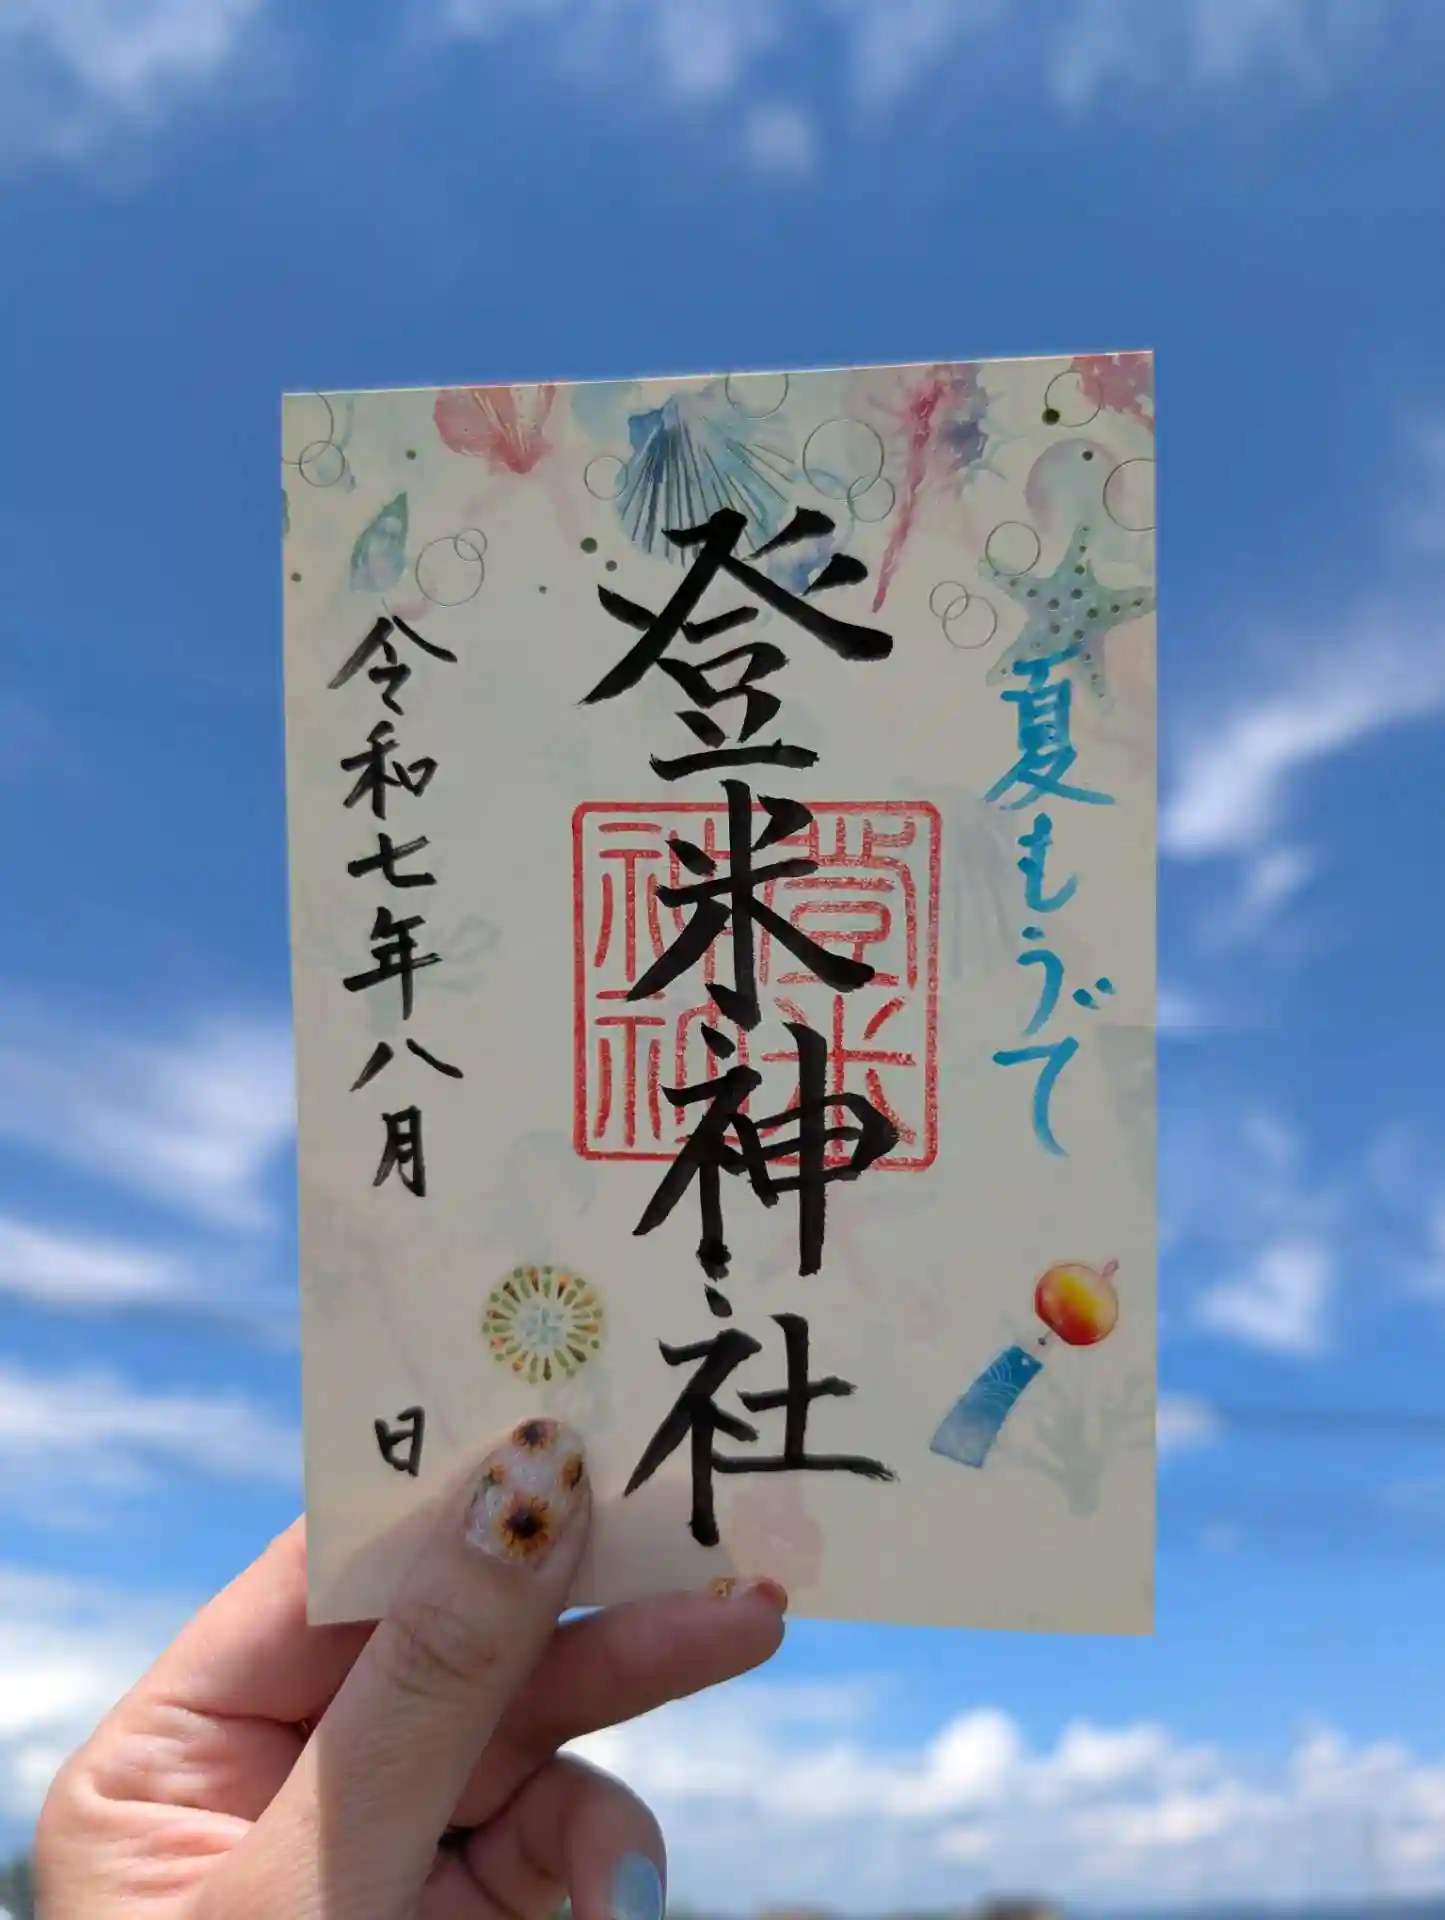 夏もうで
登米神社
登米神社
令和七年八月 日